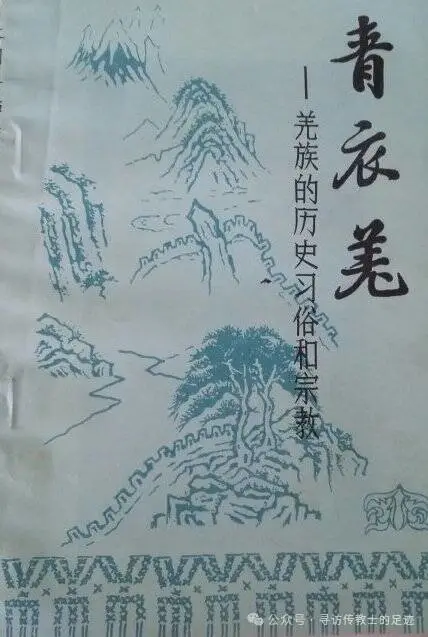 青衣羌
—羌族的历史习俗和宗教
公众号·寻访传教士的足迹